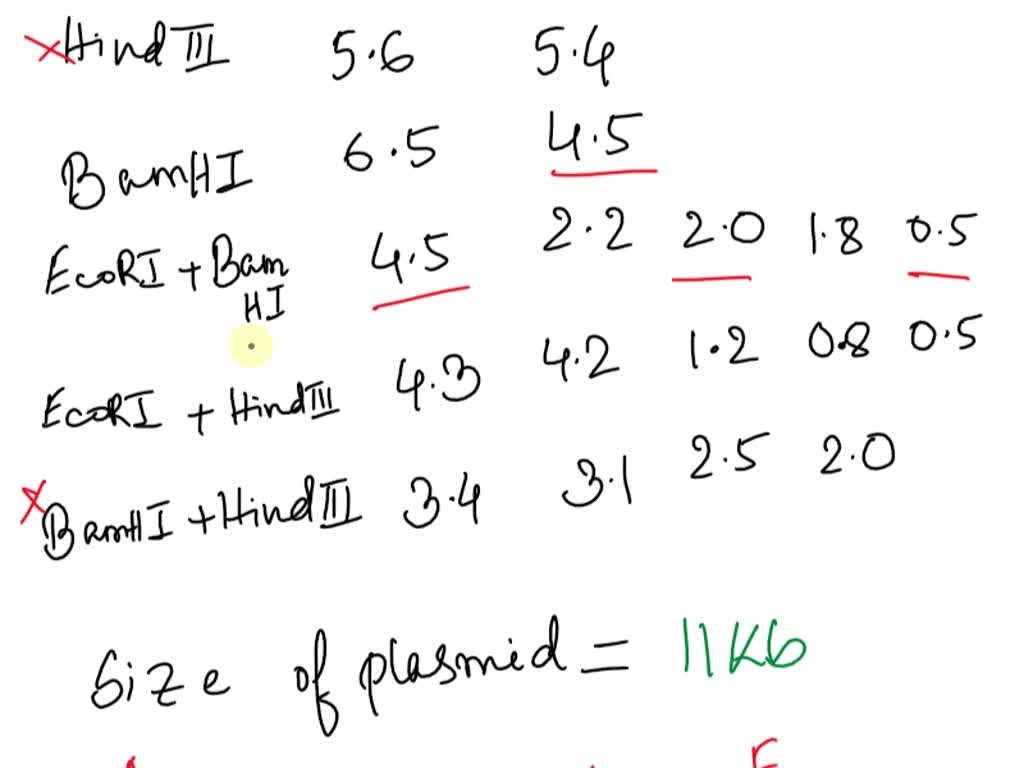 ×Hind III 5.6 5.4
BamHI 6.5 4.5
EcoRI + Bam HI 4.5 2.2 2.0 1.8 0.5
EcoRI + Hind III 4.3 4.2 1.2 0.8 0.5
×BamHI + Hind III 3.4 3.1 2.5 2.0
Size of plasmid = 11Kb